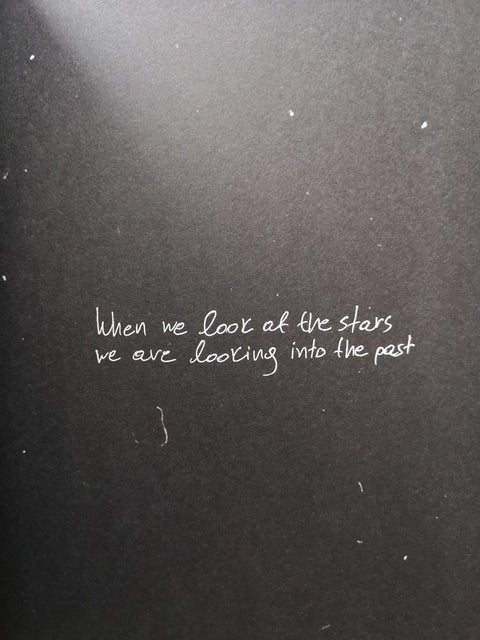 When we look at the stars
we are looking into the past